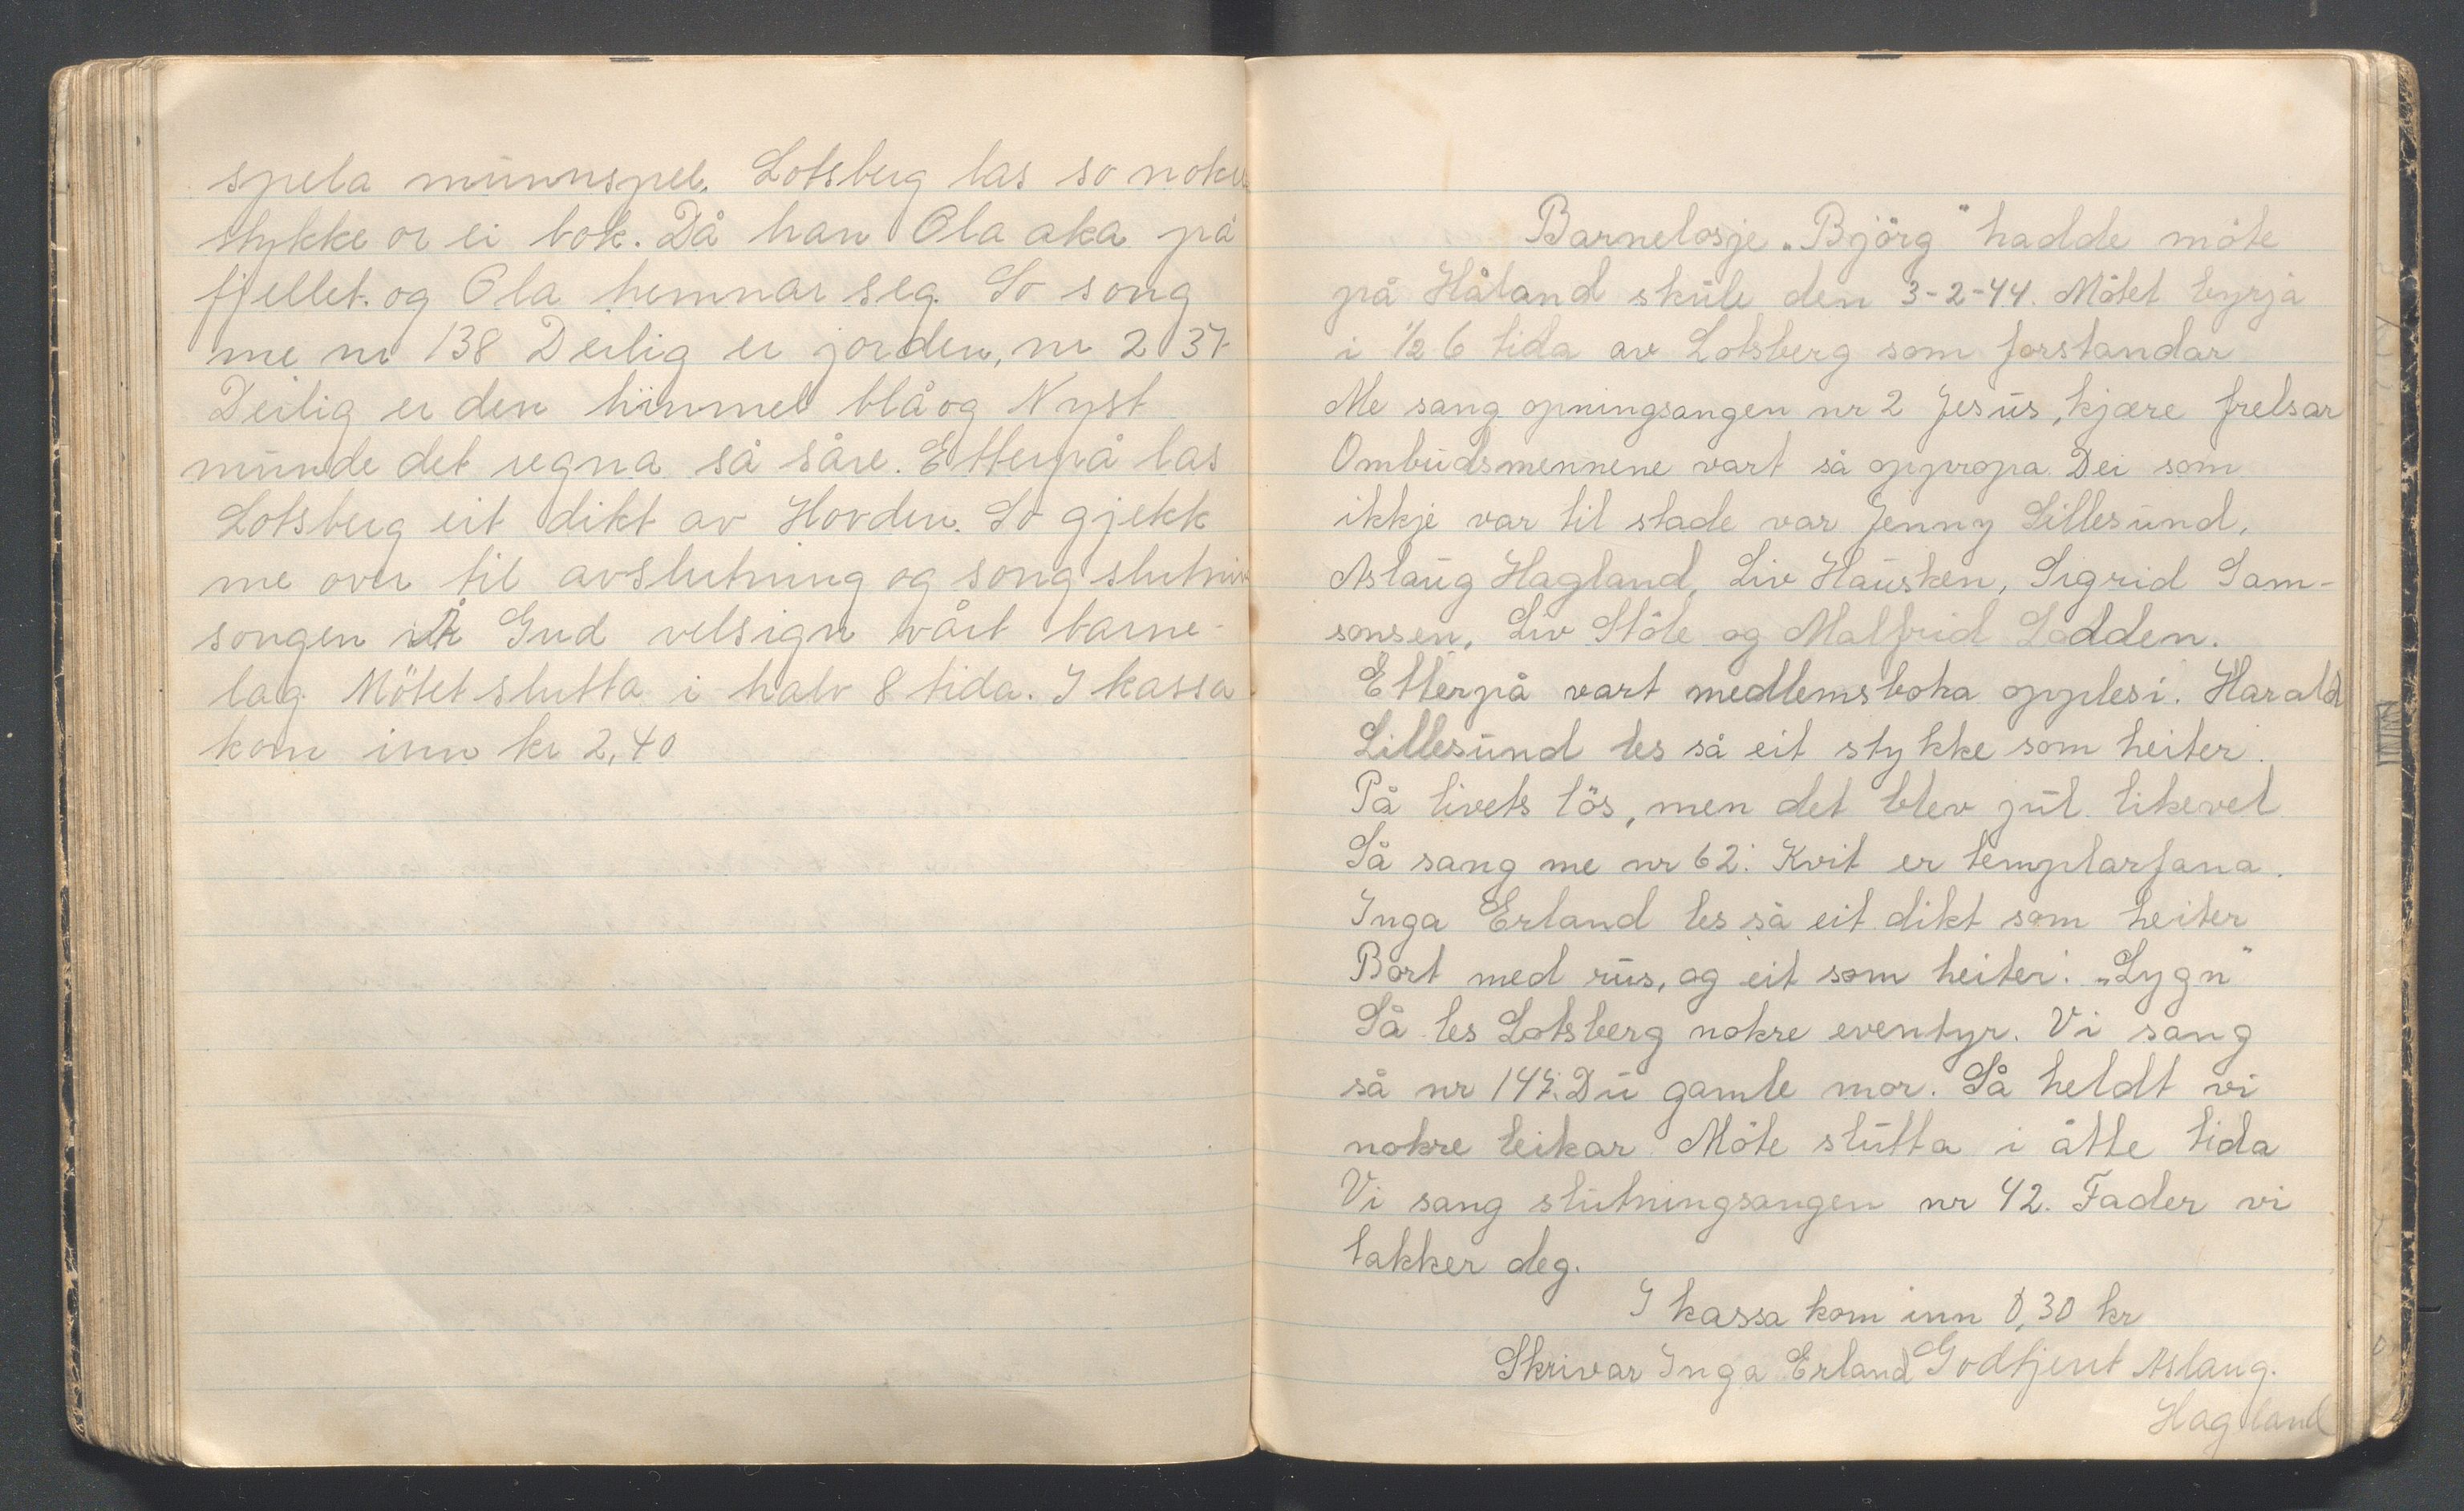 spela munnspel. Lotsberg las so nokre
stykke or ei bok. Då han Ola aka på
fjellet. og Ola hemnar seg. So song
me nr 138 Deilig er jorden, nr 237
Deilig er den himmel blå og Nyst
munde det regna så såre. Etterpå las
Lotsberg eit dikt av Hovden. So gjekk
me over til avslutning og song slutnings
songen Å Gud velsign vårt barne-
lag. Mötet slutta i halv 8 tida. I kassa
kom inn kr 2,40
Barnelosje „Björg" hadde möte
på Håland skule den 3-2-44. Mötet byrja
i ½ 6 tida av Lotsberg som forstandar
Me sang opningsangen nr 2 Jesus, kjære frelsar
Ombudsmennene vart så oppropa. Dei som
ikkje var til stade var Jenny Lillesund,
Aslaug Hagland, Liv Hausken, Sigrid Sam-
sonsen, Liv Stöle og Malfrid Lodden.
Etterpå vart medlemsboka opplesi. Harald
Lillesund les så eit stykke som heiter.
På livets lös, men det blev jul likevel
Så sang me nr 62: Kvit er templarfana.
Inga Erland les så eit dikt som heiter
Bort med rus, og eit som heiter: „Lygn"
Så les Lotsberg nokre eventyr. Vi sang
så nr 147: Du gamle mor. Så heldt vi
nokre leikar. Möte slutta i åtte tida
Vi sang slutningsangen nr 42. Fader vi
takker deg.
I kassa kom inn 0,30 kr
Skrivar Inga Erland Godkjent Aslaug.
Hagland